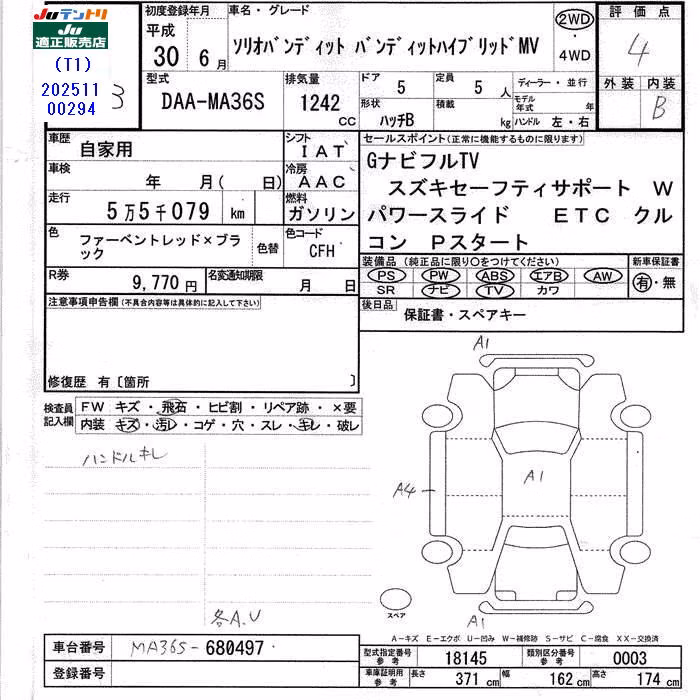 Juテントリ
Ju適正販売店
(T1)
202511
00294
3
初度登録年月
平成
30 6月
車名・グレード
ソリオバンディット バンディットハイブリッドMV
2WD
・
4WD
評価点
4
外装 内装
B
型式
DAA-MA36S
排気量
1242
CC
ドア
5
定員
5人
ディーラー・並行
モデル年式 年
形状
ハッチB
積載
kg
ハンドル 左・右
車歴
自家用
シフト
IAT
車検
年 月( 日)
冷房
AAC
走行
5万5千079 km
燃料
ガソリン
色
ファーベントレッド×ブラック
色替
色コード
CFH
R券
9,770円
名変通知期限
月 日
セールスポイント(正常に機能するものに限ります)
GナビフルTV
スズキセーフティサポート W
パワースライド ETC クル
コン Pスタート
装備品(純正品に限り○をつけてください)
PS PW ABS エアB AW
SR ナビ TV カワ
新車保証書
有・無
後日品
保証書・スペアキー
注意事項申告欄(不具合内容等は具体的に記入して下さい)
修復歴 有〔箇所 〕
検査員記入欄
FW キズ・飛石・ヒビ割・リペア跡・×要
内装 キズ・汚レ・コゲ・穴・スレ・キレ・破レ
ハンドルキレ
各A.U
A1
A1
A4
A1
スペア
A-キズ E-エクボ U-凹み W-補修跡 S-サビ C-腐食 XX-交換済
車台番号
MA36S-680497
登録番号
型式指定番号参考
18145
類別区分番号参考
0003
車庫証明用参考
長さ 371cm
幅 162cm
高さ 174cm